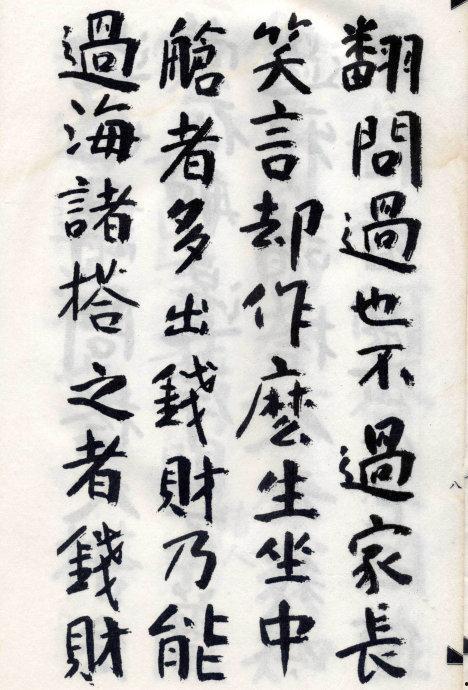 翻問過也不過家長
笑言却作麽生坐中
艙者多出錢財乃能
過海諸搭之者錢財
八